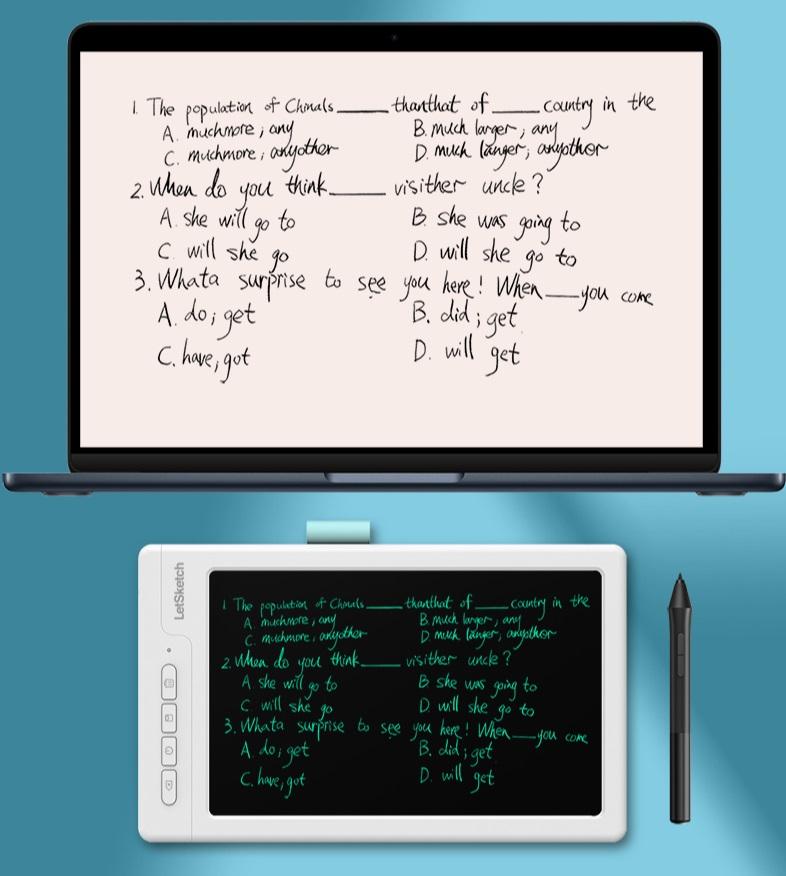 1. The population of Chinals ____ thanthat of ____ country in the
A. muchmore; any B. much larger; any
C. muchmore; anyother D. much larger; anyother
2. When do you think ____ visither uncle?
A. she will go to B. she was going to
C. will she go D. will she go to
3. Whata surprise to see you here! When ____ you come
A. do; get B. did; get
C. have; got D. will get
LetSketch
1. The population of Chinals ____ thanthat of ____ country in the
A. muchmore; any B. much larger; any
C. muchmore; anyother D. much larger; anyother
2. When do you think ____ visither uncle?
A. she will go to B. she was going to
C. will she go D. will she go to
3. Whata surprise to see you here! When ____ you come
A. do; get B. did; get
C. have; got D. will get